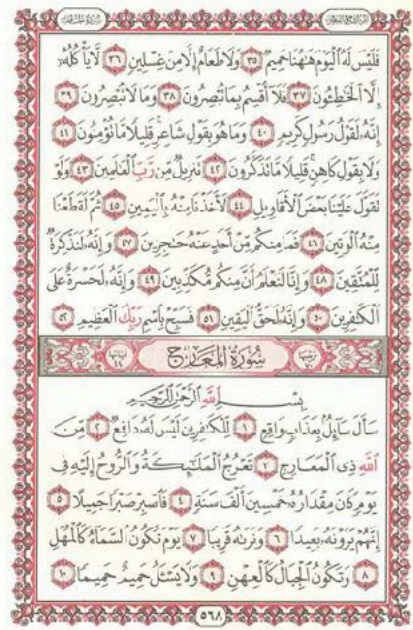 سُورَةُ الحَاقَّةِ
فَلَيْسَ لَهُ ٱلْيَوْمَ هَٰهُنَا حَمِيمٌ ٣٥ وَلَا طَعَامٌ إِلَّا مِنْ غِسْلِينٍ ٣٦ لَّا يَأْكُلُهُۥٓ
إِلَّا ٱلْخَٰطِـُٔونَ ٣٧ فَلَآ أُقْسِمُ بِمَا تُبْصِرُونَ ٣٨ وَمَا لَا تُبْصِرُونَ ٣٩
إِنَّهُۥ لَقَوْلُ رَسُولٍ كَرِيمٍ ٤٠ وَمَا هُوَ بِقَوْلِ شَاعِرٍ ۚ قَلِيلًا مَّا تُؤْمِنُونَ ٤١
وَلَا بِقَوْلِ كَاهِنٍ ۚ قَلِيلًا مَّا تَذَكَّرُونَ ٤٢ تَنزِيلٌ مِّن رَّبِّ ٱلْعَٰلَمِينَ ٤٣ وَلَوْ
تَقَوَّلَ عَلَيْنَا بَعْضَ ٱلْأَقَاوِيلِ ٤٤ لَأَخَذْنَا مِنْهُ بِٱلْيَمِينِ ٤٥ ثُمَّ لَقَطَعْنَا
مِنْهُ ٱلْوَتِينَ ٤٦ فَمَا مِنكُم مِّنْ أَحَدٍ عَنْهُ حَٰجِزِينَ ٤٧ وَإِنَّهُۥ لَتَذْكِرَةٌ
لِّلْمُتَّقِينَ ٤٨ وَإِنَّا لَنَعْلَمُ أَنَّ مِنكُم مُّكَذِّبِينَ ٤٩ وَإِنَّهُۥ لَحَسْرَةٌ عَلَى
ٱلْكَٰفِرِينَ ٥٠ وَإِنَّهُۥ لَحَقُّ ٱلْيَقِينِ ٥١ فَسَبِّحْ بِٱسْمِ رَبِّكَ ٱلْعَظِيمِ ٥٢
سُورَةُ المَعَارِجِ
بِسْمِ ٱللَّهِ ٱلرَّحْمَٰنِ ٱلرَّحِيمِ
سَأَلَ سَآئِلٌۢ بِعَذَابٍ وَاقِعٍ ١ لِّلْكَٰفِرِينَ لَيْسَ لَهُۥ دَافِعٌ ٢ مِّنَ
ٱللَّهِ ذِى ٱلْمَعَارِجِ ٣ تَعْرُجُ ٱلْمَلَٰٓئِكَةُ وَٱلرُّوحُ إِلَيْهِ فِى
يَوْمٍ كَانَ مِقْدَارُهُۥ خَمْسِينَ أَلْفَ سَنَةٍ ٤ فَٱصْبِرْ صَبْرًا جَمِيلًا ٥
إِنَّهُمْ يَرَوْنَهُۥ بَعِيدًا ٦ وَنَرَىٰهُ قَرِيبًا ٧ يَوْمَ تَكُونُ ٱلسَّمَآءُ كَٱلْمُهْلِ
٨ وَتَكُونُ ٱلْجِبَالُ كَٱلْعِهْنِ ٩ وَلَا يَسْـَٔلُ حَمِيمٌ حَمِيمًا ١٠
٥٦٨